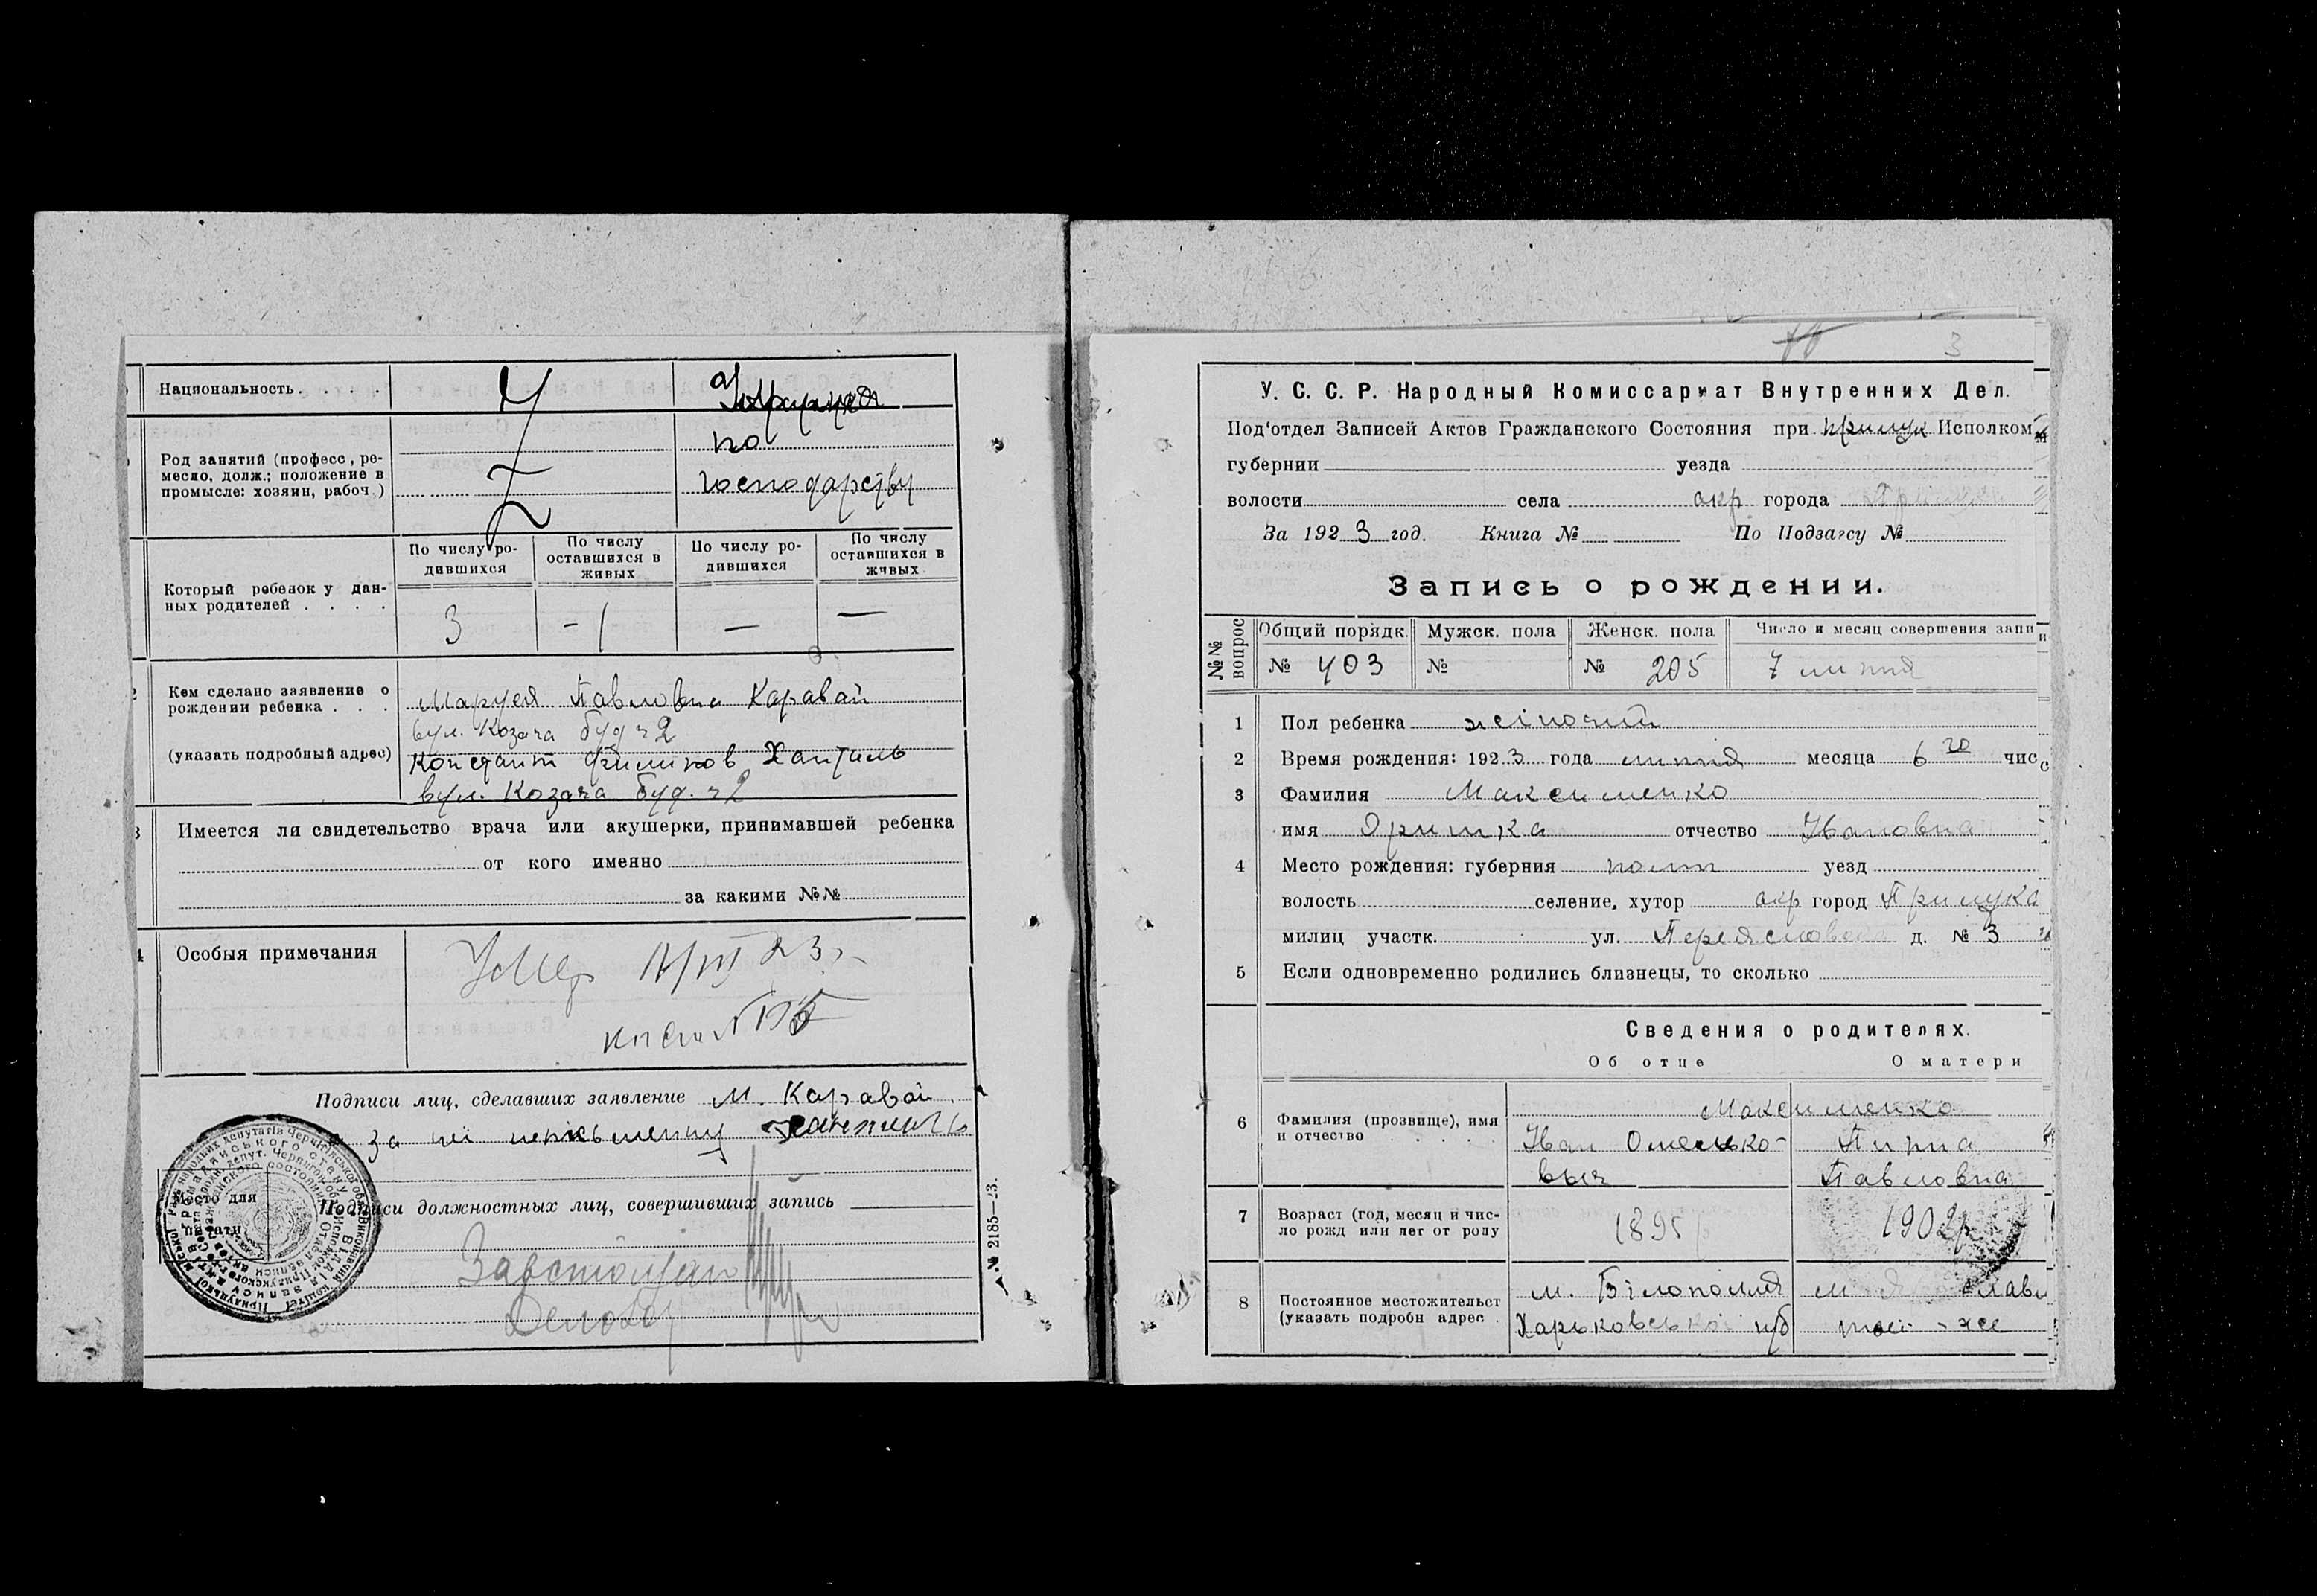 Национальность. . . . .
Украинка
Род занятий (професс, ре-
месло, долж.; положение в
промысле: хозяин, рабоч.)
по
господарству
Который ребенок у дан-
ных родителей . . . .
По числу ро-
дившихся
По числу
оставшихся в
живых
По числу ро-
дившихся
По числу
оставшихся в
живых
3
- 1
—
—
Кем сделано заявление о
рождении ребенка . . .
(указать подробный адрес)
Маруся Павловна Каравай
вул. Козача буд ч 2
Констант Филипов
вул. Козача буд. ч 2
Имеется ли свидетельство врача или акушерки, принимавшей ребенка
от кого именно
за какими №№
Особыя примечания
Умер 23 г.
Подписи лиц, сделавших заявление М. Каравай.
За неписьменну
Место для
печати
Подписи должностных лиц, совершивших запись
№ 2185—23.
3
У. С. С. Р. Народный Комиссариат Внутренних Дел.
Под'отдел Записей Актов Гражданского Состояния при Прилук Исполком
губернии уезда
волости села окр города
За 1923 год. Книга № По Подзагсу №
Запись о рождении.
№№ вопрос
Общий порядк. Мужск. пола Женск. пола Число и месяц совершения запи
№ 403 № № 205 7 липня
1 Пол ребенка жіночий
2 Время рождения: 1923 года липня месяца 6 го чис
3 Фамилия Максименко
имя Оришка отчество Ивановна
4 Место рождения: губерния полт уезд
волость селение, хутор окр город Прилука
милиц участк. ул. д. № 3
5 Если одновременно родились близнецы, то сколько
Сведения о родителях.
Об отце О матери
6 Фамилия (прозвище), имя
и отчество . . . .
Максименко
Иван Омелько-
выч
Павловна
7 Возраст (год, месяц и чис-
ло рожд или лет от роду
1895 р
1902 р
8 Постоянное местожительст
(указать подробн адрес .
м. Білополля
Харьковської губ